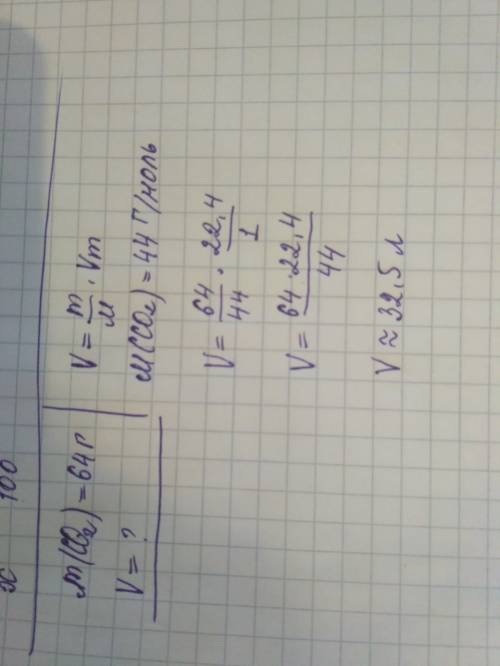 x 100
m(CO₂) = 64г
V = ?
V = m/M · Vm
M(CO₂) = 44 г/моль
V = 64/44 · 22,4/1
V = 64·22,4/44
V ≈ 32,5 л